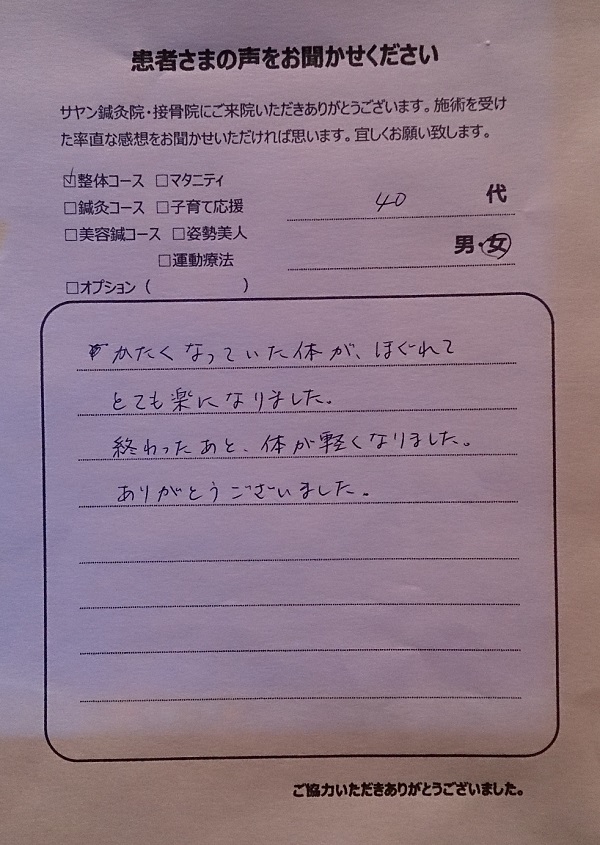 患者さまの声をお聞かせください
サヤン鍼灸院・接骨院にご来院いただきありがとうございます。施術を受け
た率直な感想をお聞かせいただければ思います。宜しくお願い致します。
☑整体コース □マタニティ
□鍼灸コース □子育て応援
□美容鍼コース □姿勢美人
□運動療法
□オプション（ ）
40 代
男・女
かたくなっていた体が、ほぐれて
とても楽になりました。
終わったあと、体が軽くなりました。
ありがとうございました。
ご協力いただきありがとうございました。